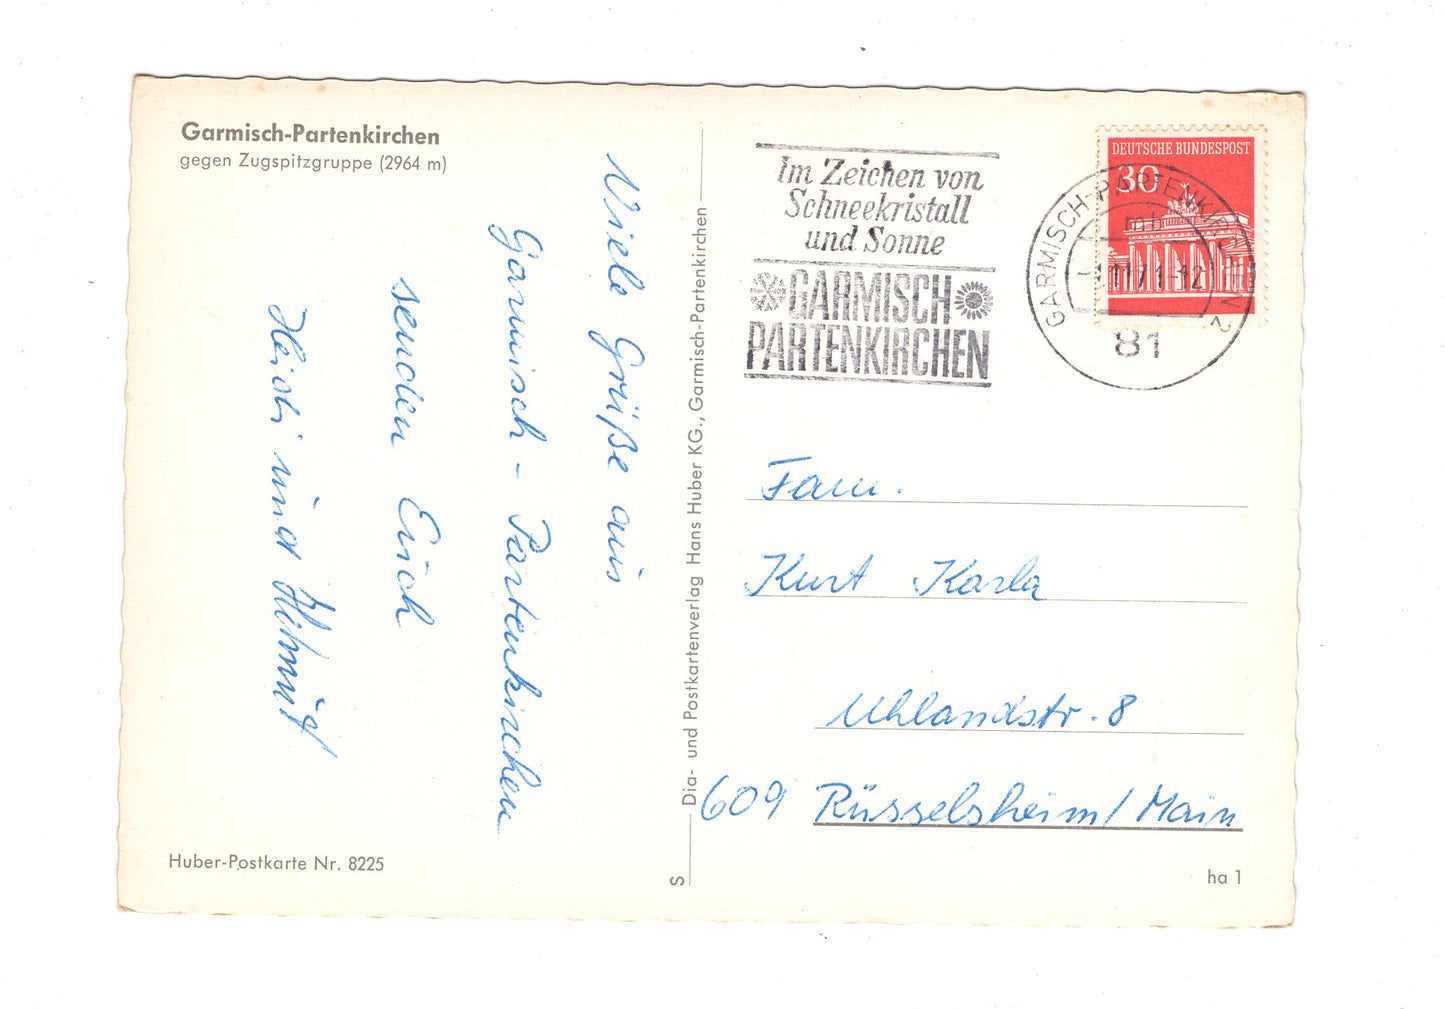 Garmisch-Partenkirchen
gegen Zugspitzgruppe (2964 m)
Viele Grüße aus
Garmisch - Partenkirchen
senden Erich
Heidi und Helmut
Huber-Postkarte Nr. 8225
S
Dia- und Postkartenverlag Hans Huber KG., Garmisch-Partenkirchen
Im Zeichen von
Schneekristall
und Sonne
GARMISCH
PARTENKIRCHEN
DEUTSCHE BUNDESPOST
30
GARMISCH-PARTENKIRCHEN 2
mb
11.71-12
81
Fam.
Kurt Karla
Uhlandstr. 8
609 Rüsselsheim/Main
ha 1